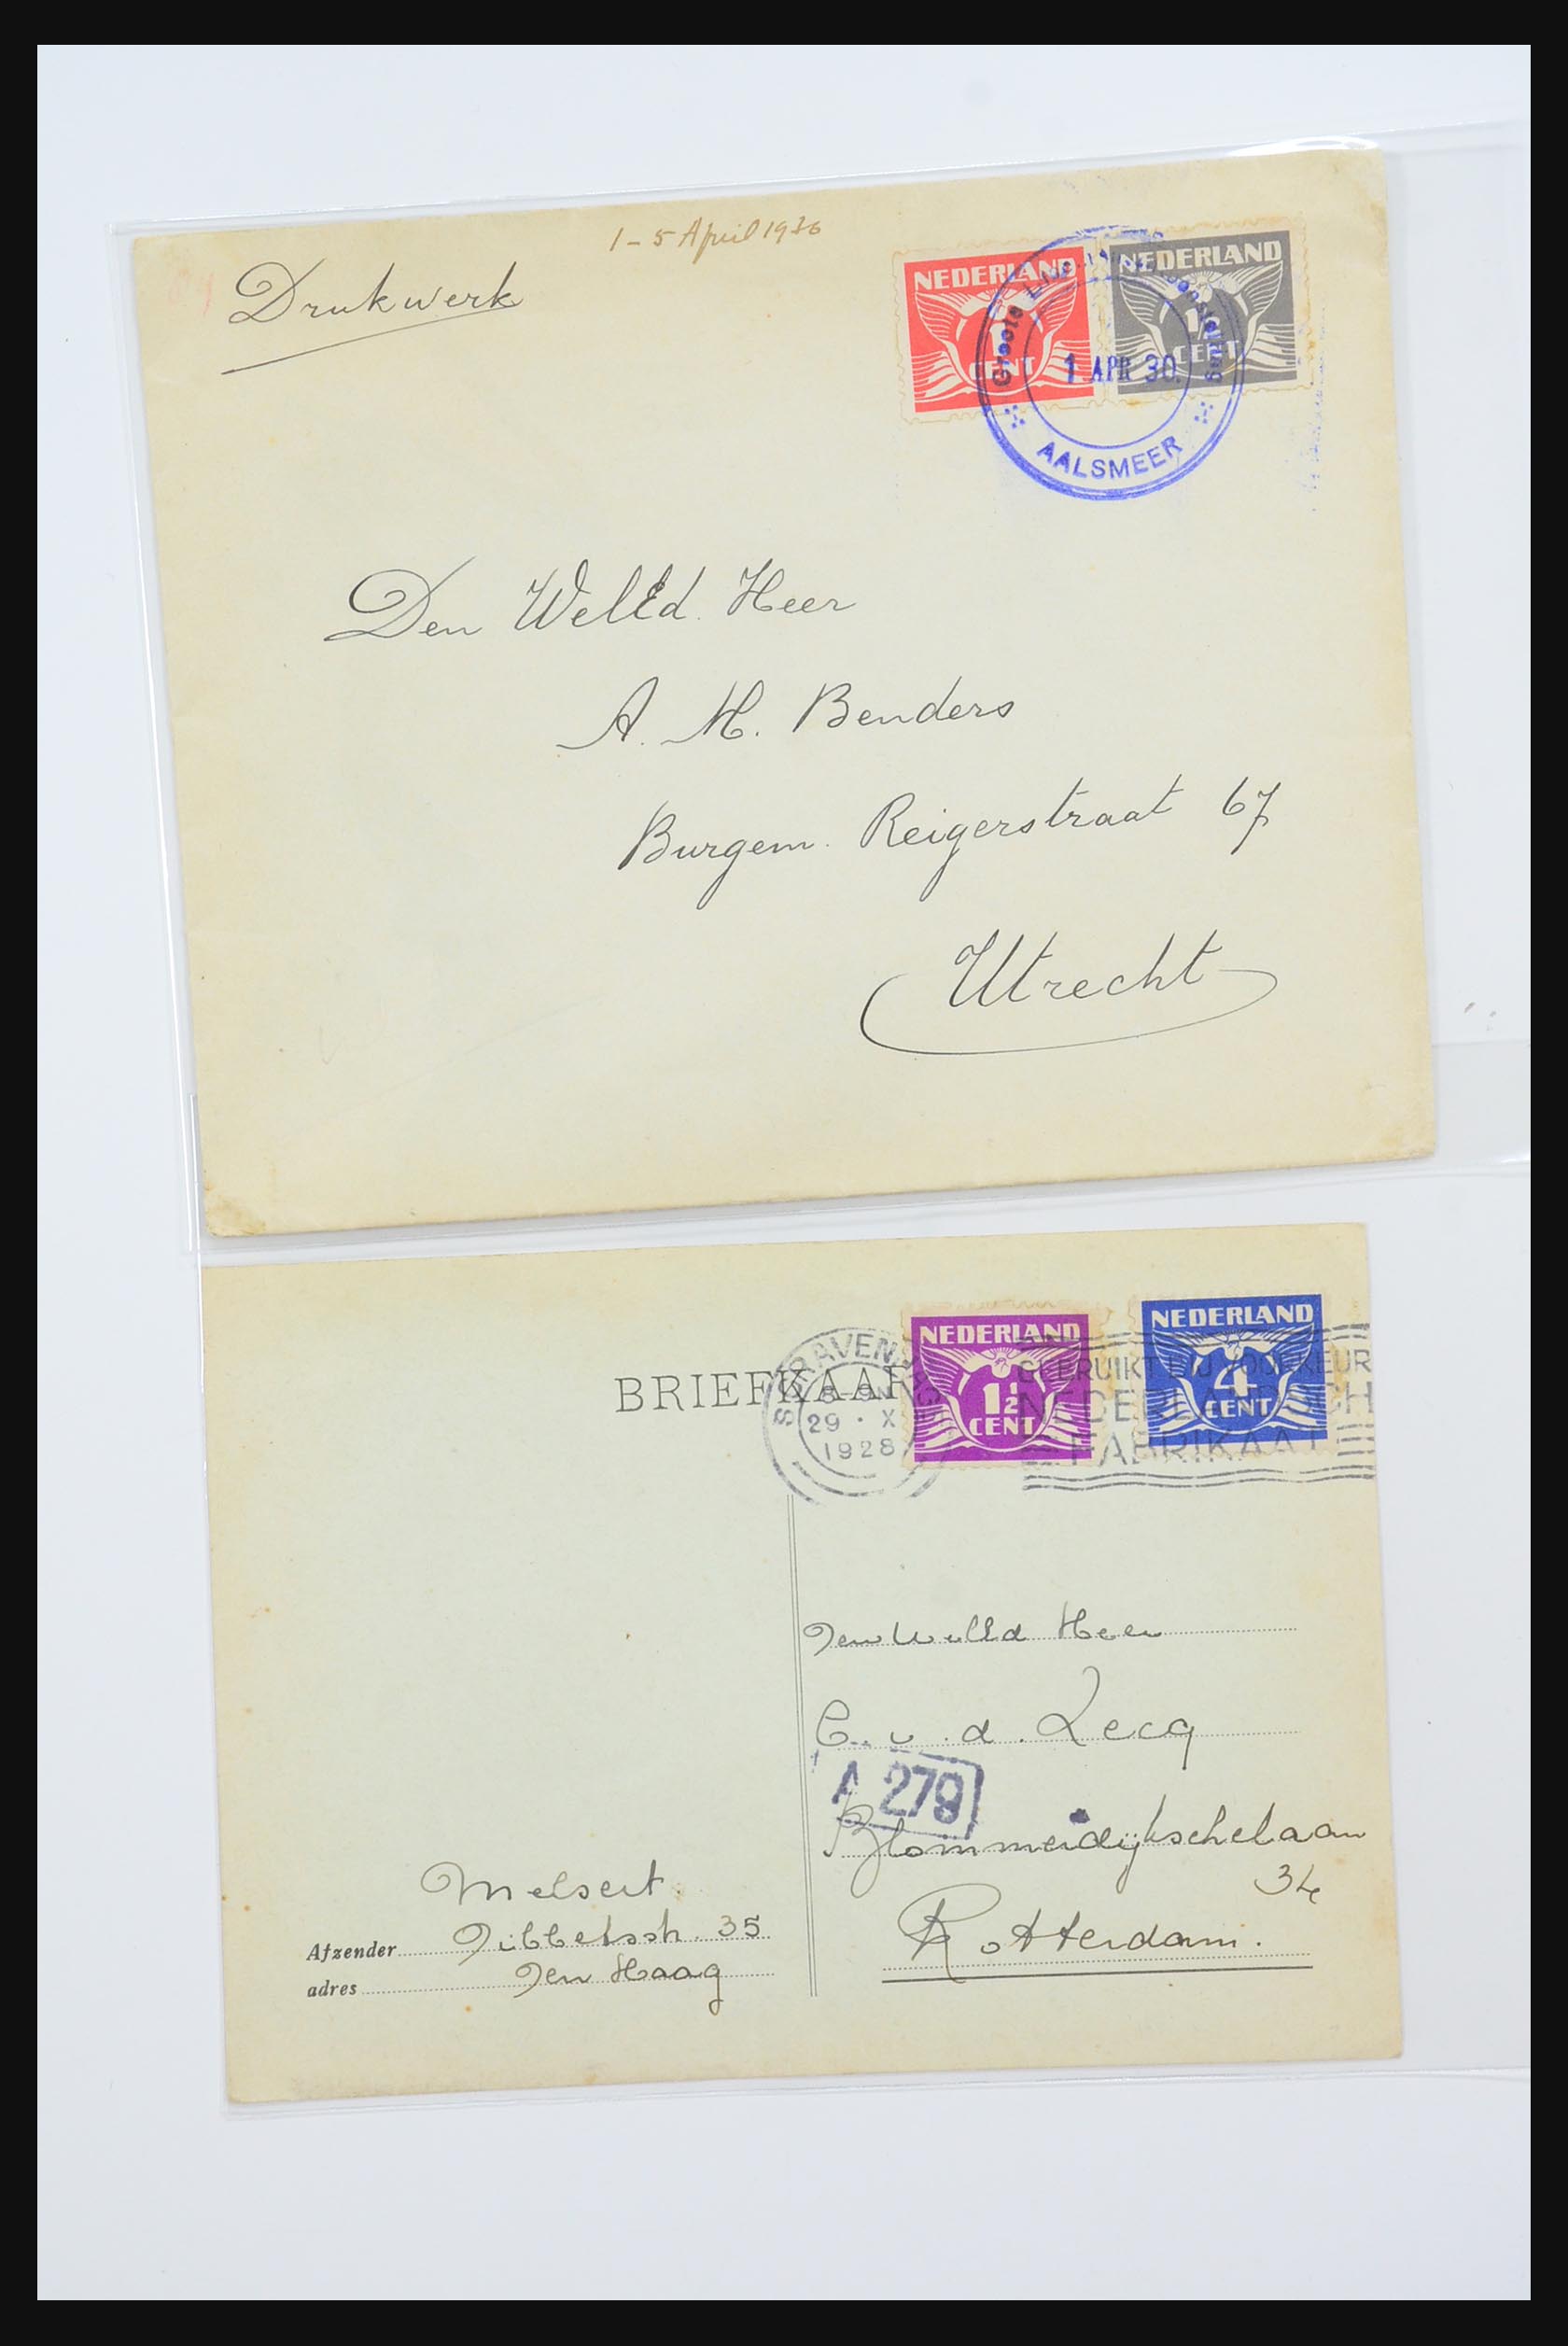 1-5 April 1930
Drukwerk
NEDERLAND
CENT
NEDERLAND
½
CENT
Groote
1 APR 30.
AALSMEER
Den WelEd. Heer
A. H. Benders
Burgem. Reigerstraat 67
Utrecht
BRIEFKAART
8-9N
29 · X
1928
NEDERLAND
1½
CENT
NEDERLAND
4
CENT
GEBRUIKT BIJ VOORKEUR
NEDERLANDSCH
FABRIKAAT
Den WelEd Heer
C. v. d. Lecq
A 279
Blommerdijkschelaan
34
Rotterdam.
Melsert.
Afzender 35
adres Den Haag